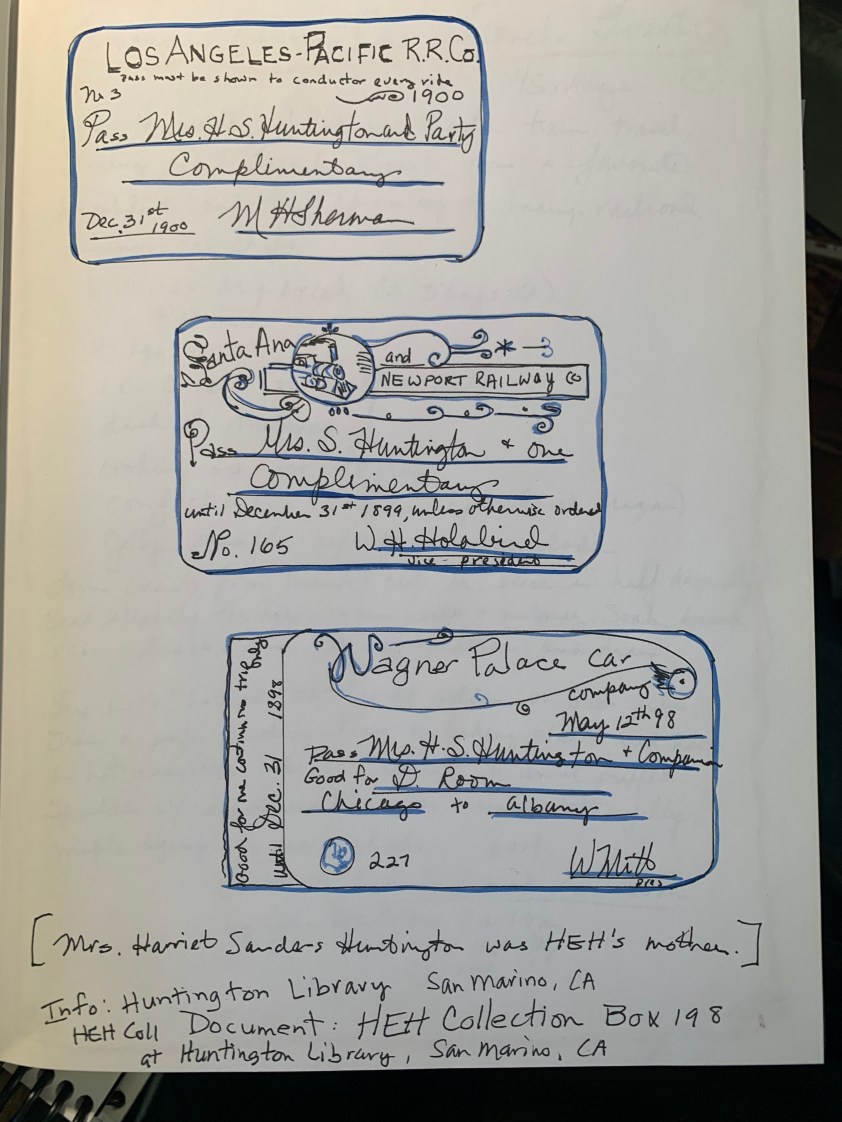 LOS ANGELES-PACIFIC R.R.Co.
Pass must be shown to conductor every ride
No 3
1900
Pass Mrs. H.S. Huntington and Party
Complimentary
Dec. 31st 1900
M H Sherman
Santa Ana
and
NEWPORT RAILWAY CO
Pass Mrs. S. Huntington & one
Complimentary
until December 31st 1899, unless otherwise ordered
No. 165
W.H. Holabird
vice-president
Good for one continuous trip only
Until Dec. 31 1898
Wagner Palace Car
company
May 12th 98
Pass Mrs. H.S. Huntington + Companion
Good for D. Room
Chicago to Albany
227
pres
[Mrs. Harriet Sanders Huntington was HEH's mother.]
Info: Huntington Library San Marino, CA
HEH Coll Document: HEH Collection Box 198
at Huntington Library, San Marino, CA